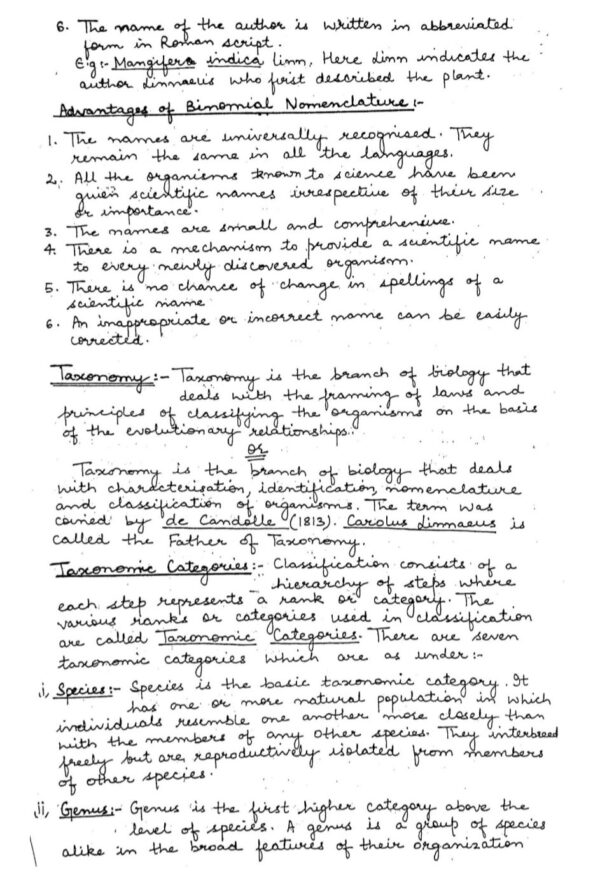 6. The name of the author is written in abbreviated
form in Roman script.
E.g:- Mangifera indica linn, Here linn indicates the
author Linnaeus who first described the plant.
Advantages of Binomial Nomenclature:-
1. The names are universally recognised. They
remain the same in all the languages.
2. All the organisms known to science have been
given scientific names irrespective of their size
or importance.
3. The names are small and comprehensive.
4. There is a mechanism to provide a scientific name
to every newly discovered organism.
5. There is no chance of change in spellings of a
scientific name
6. An inappropriate or incorrect name can be easily
corrected.
Taxonomy:- Taxonomy is the branch of biology that
deals with the framing of laws and
principles of classifying the organisms on the basis
of the evolutionary relationships.
or
Taxonomy is the branch of biology that deals
with characterisation, identification, nomenclature
and classification of organisms. The term was
coined by de Candolle (1813). Carolus Linnaeus is
called the Father of Taxonomy.
Taxonomic Categories:- Classification consists of a
hierarchy of steps where
each step represents a rank or category. The
various ranks or categories used in classification
are called Taxonomic Categories. There are seven
taxonomic categories which are as under:-
i, Species:- Species is the basic taxonomic category. It
has one or more natural population in which
individuals resemble one another more closely than
with the members of any other species. They interbreed
freely but are reproductively isolated from members
of other species.
ii, Genus:- Genus is the first higher category above the
level of species. A genus is a group of species
alike in the broad features of their organization